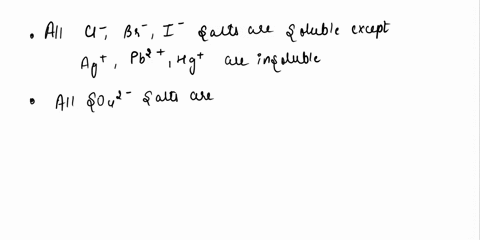 • All Cl⁻, Br⁻, I⁻ salts are soluble except
Ag⁺, Pb²⁺, Hg⁺ are insoluble
• All SO₄²⁻ salts are